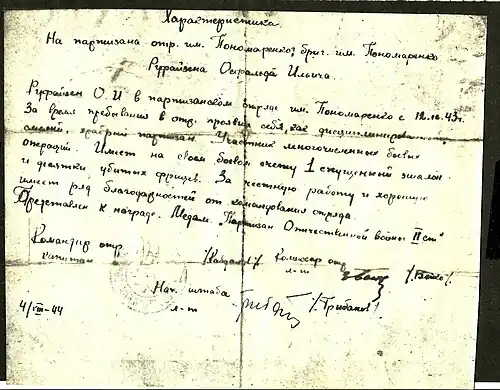 Характеристика
На партизана отр. им. Пономаренко бриг. им. Пономаренко
Руфайзена Освальда Ильича.
Руфайзен О. И в партизанском отряде им. Пономаренко с 12.10.43г.
За время пребывания в отр. проявил себя, как
смелый, храбрый партизан. Участник многочисленных боевых
операций. Имеет на своем боевом счету 1 спущенный эшалон.
и десятки убитых фрицев. За честную работу и хорошую
имеет ряд благодарностей от командования отряда.
Представлен к награде. Медаль "Партизан Отечественной войны II ст"
Командир отр.
капитан
Комиссар отр.
л-т
Нач. штаба
л-т
4/VIII-44